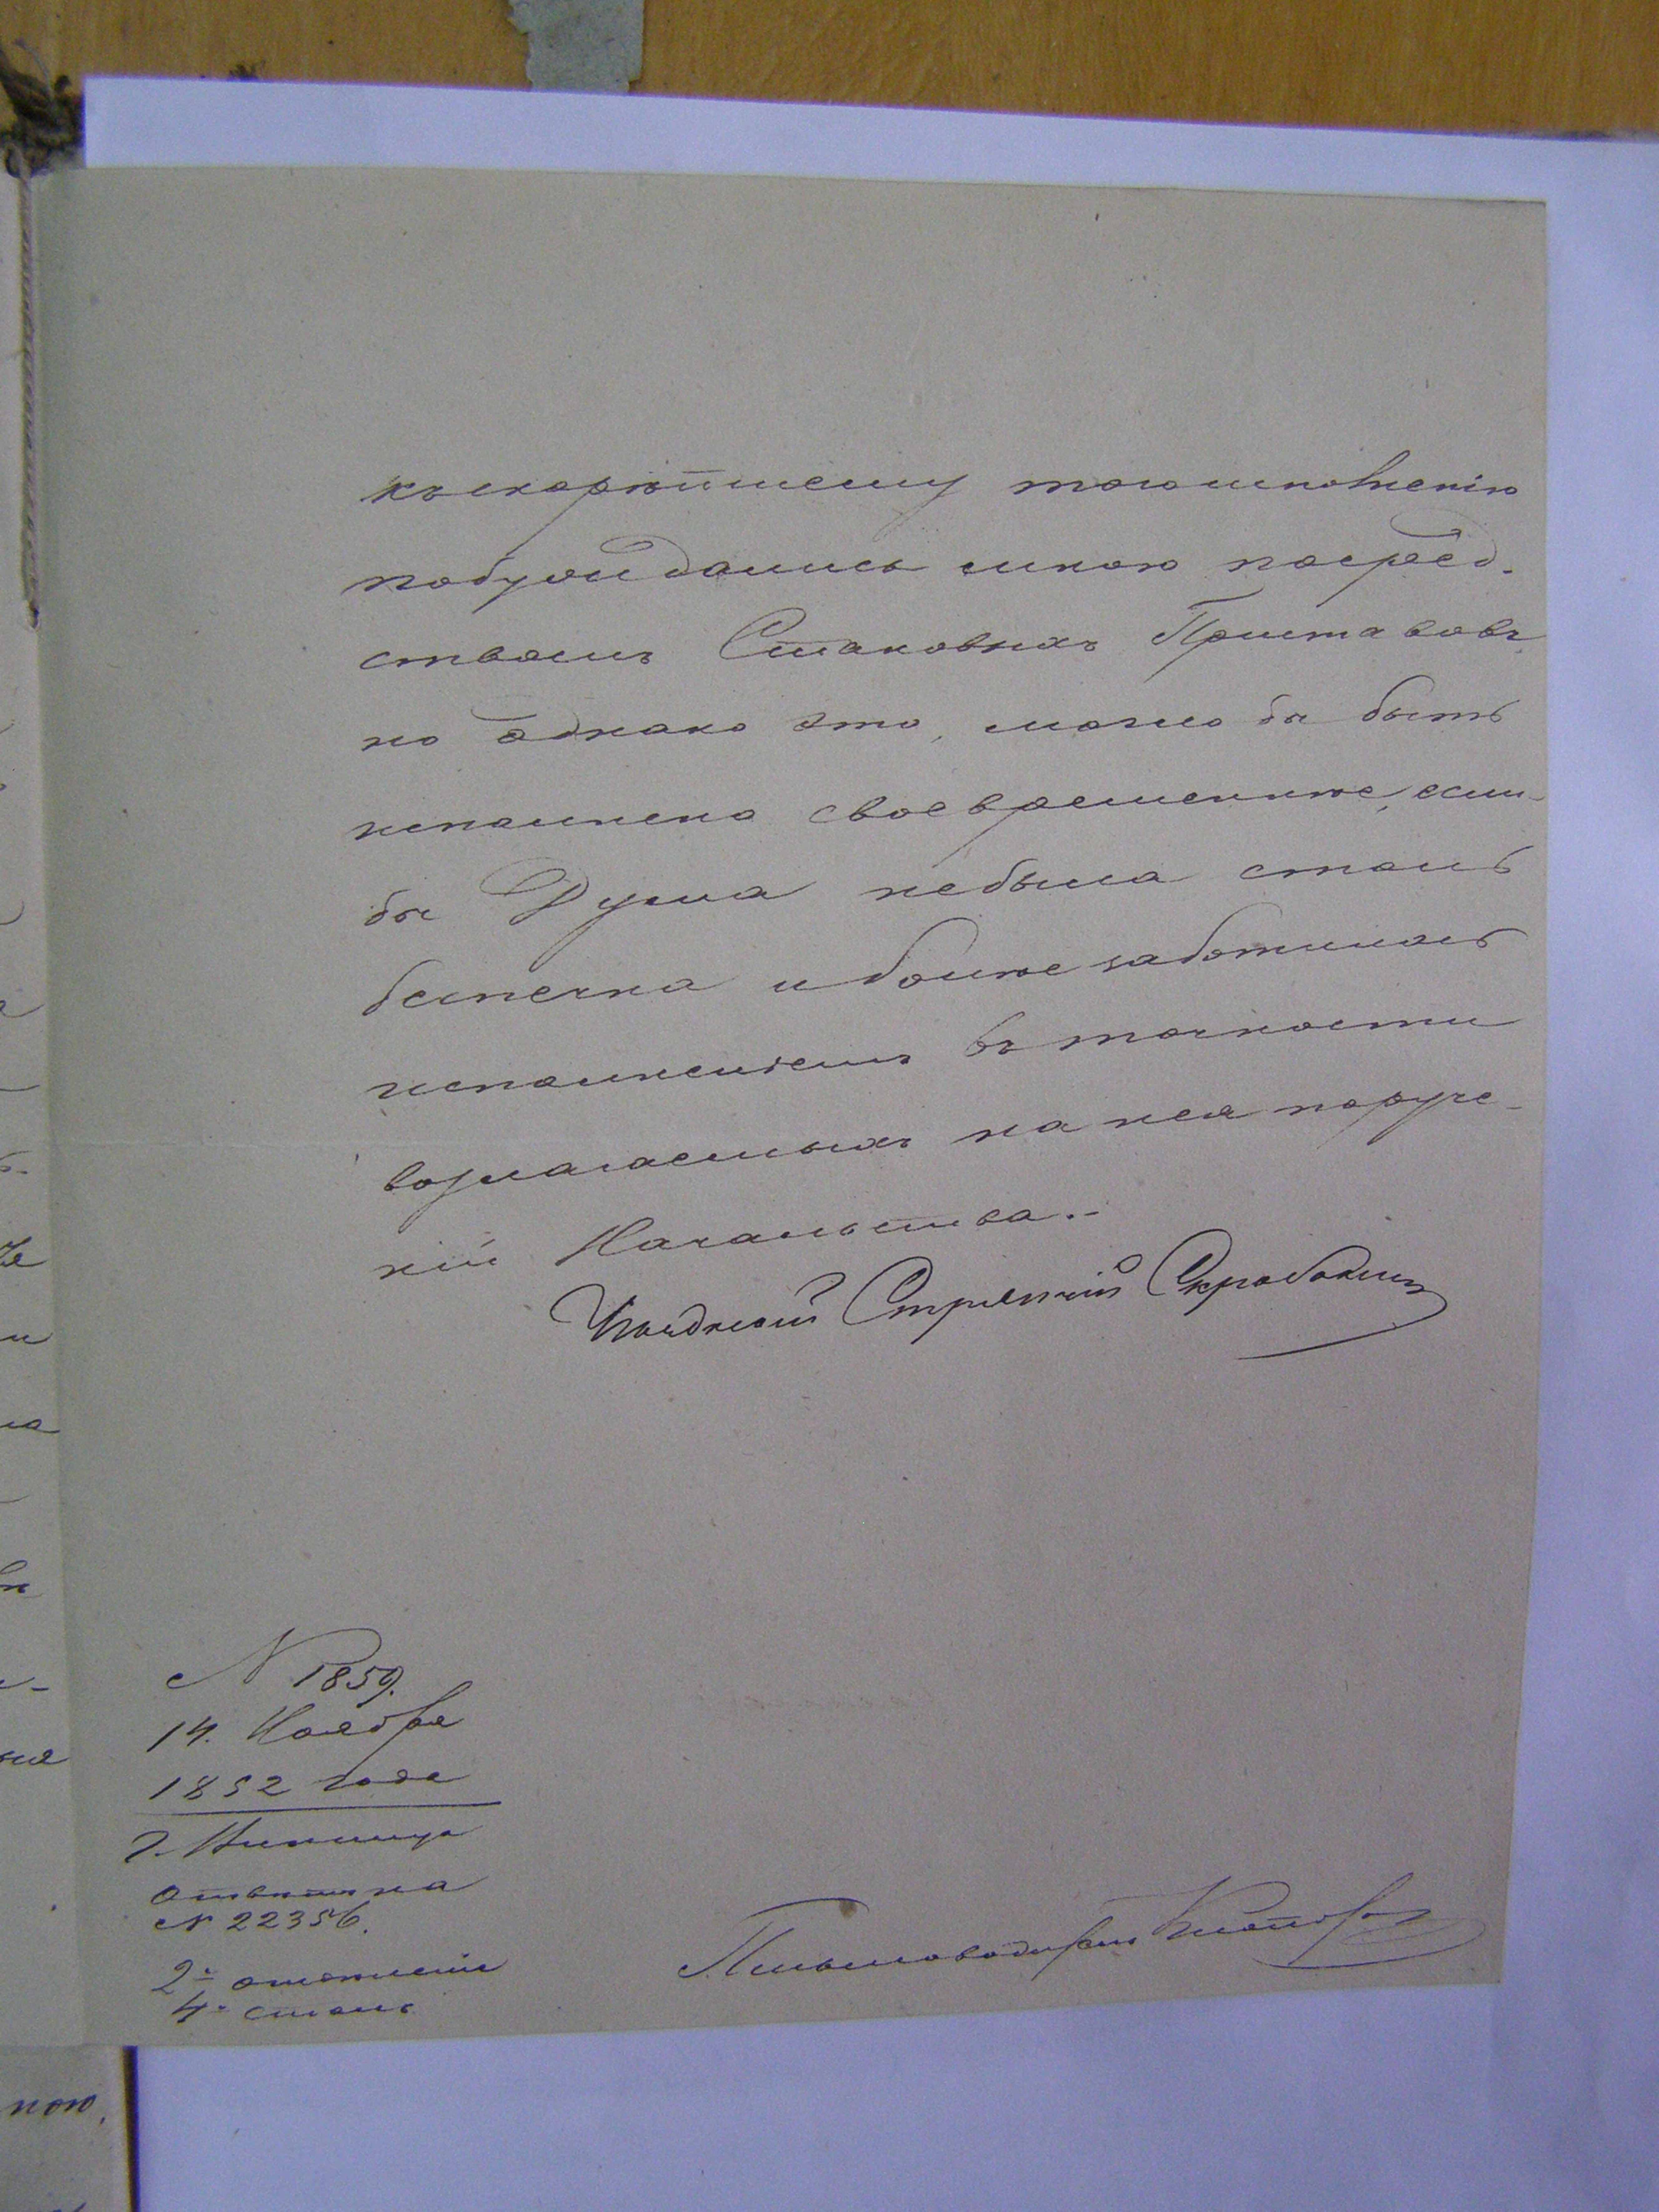 къ скорѣйшему того исполненію
побуждались мною посред-
ствомъ Становыхъ Приставовъ,
но однако это, могло бы быть
исполнено своевременнѣе, если-
бы Дума небыла столь
безпечна и болѣе заботилась
исполненіемъ въ точности
возлагаемыхъ на нея поруче-
ній Начальства.-
Уѣздный Стряпчій
N 1859.
14. Ноября
1852 года
г.
отвѣтъ на
N 22356.
2е отдѣленіе
4й столъ
Письмоводитель
ною.